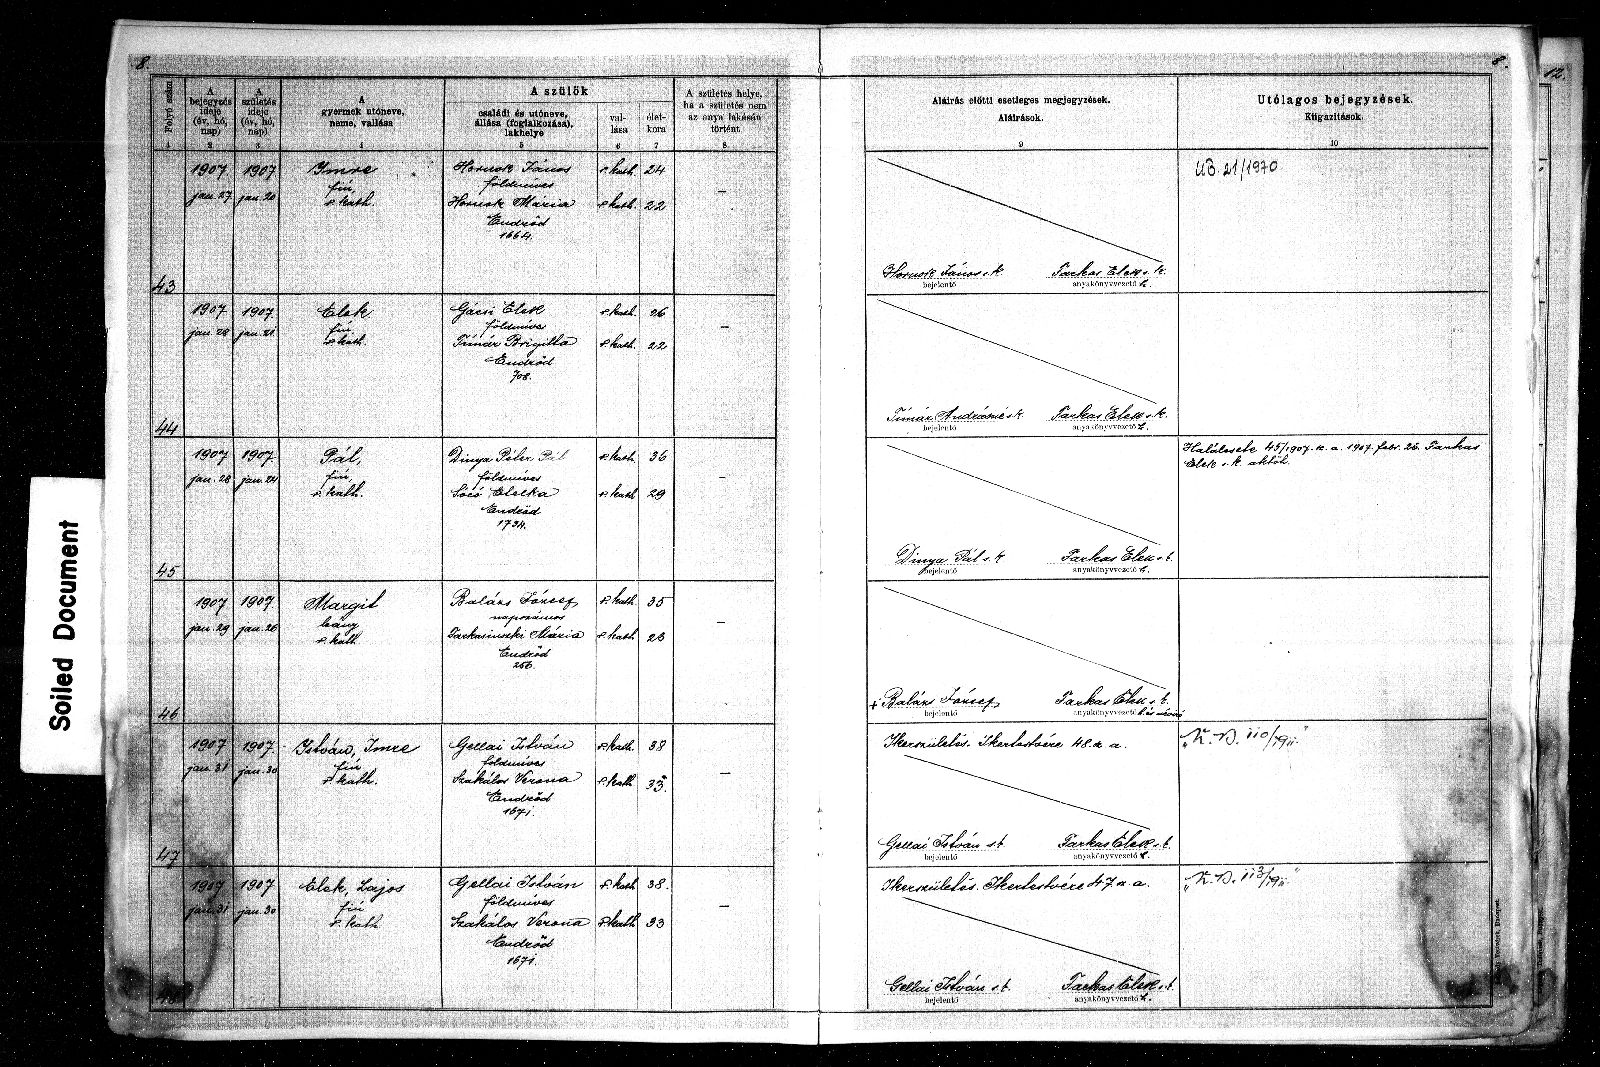 8.
8.
12.
Folyó szám
A bejegyzés ideje (év, hó, nap)
A születés ideje (év, hó, nap)
A gyermek utóneve, neme, vallása
A szülők
családi és utóneve, állása (foglalkozása), lakhelye
vallása
életkora
A születés helye, ha a születés nem az anya lakásán történt
Aláírás előtti esetleges megjegyzések.
Aláírások.
Utólagos bejegyzések.
Kiigazítások.
1 2 3 4 5 6 7 8 9 10
1907 1907 Imre Hornok János r. kath. 24
fiú földmüves
jan. 27 jan. 20 r. kath. Hornok Mária r. kath. 22 –
Endrőd
1664.
43
UB. 21/1970
Hornok János s. k. Farkas Elek s. k.
bejelentő anyakönyvvezető h.
1907 1907. Elek Gácsi Elek r. kath. 26
fiú földmüves
jan. 28 jan. 21 r. kath. Tímár Brigitta r. kath. 22 –
Endrőd
708.
44
Tímár Andrásné s. k. Farkas Elek s. k.
bejelentő anyakönyvvezető h.
1907 1907. Pál, Dinya Péter Pál r. kath. 36
fiú, földmüves
jan. 28 jan. 24 r. kath. Elelka r. kath 29 –
Endrőd
1734.
45
Halálesete 45/1907. u. a. 1907. febr. 26. Farkas
Elek s. k. aktól.
Dinya Pál s. k. Farkas Elek s. k.
bejelentő anyakönyvvezető h.
1907 1907. Margit Balázs József r. kath. 35
leány napszámos
jan. 29 jan. 26 r. kath. Mária r. kath. 23 –
Endrőd
256.
46
+ Balázs József Farkas Elek s. k.
bejelentő anyakönyvvezető h. és névíró
1907 1907. István, Imre Gellai István r. kath 38
fiú földmüves
jan. 31 jan. 30 r. kath. Szakálos Verona r. kath 33. –
Endrőd
1671.
47
Ikerszületés. Ikertestvére 48. u. a.
Gellai István s. k. Farkas Elek s. k.
bejelentő anyakönyvvezető h.
1907 1907 Elek, Lajos Gellai István r. kath 38.
fiú földmüves
jan. 31 jan. 30 r. kath Szakálos Verona r. kath 33 –
Endrőd
1671.
48
Ikerszületés. Ikertestvére 47 u. a.
Gellai István s. k. Farkas Elek s. k.
bejelentő anyakönyvvezető h.
Soiled Document